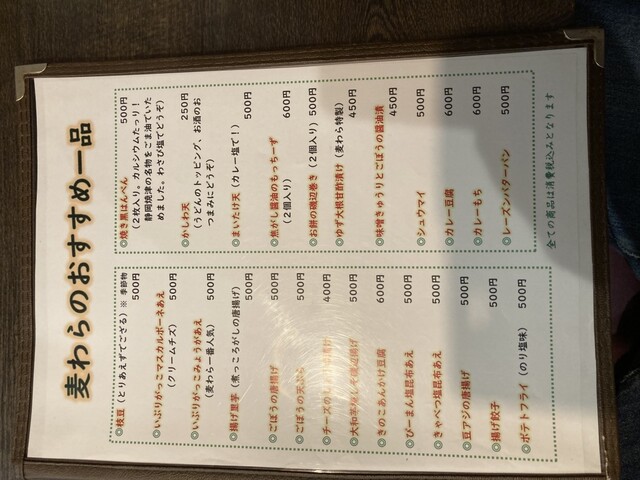 麦わらのおすすめ一品
◎枝豆(とりあえずでござる)※ 季節物
500円
◎いぶりがっこマスカルポーネあえ
(クリームチズ) 500円
◎いぶりがっこみょうがあえ
(麦わら一番人気) 500円
◎揚げ里芋 (煮っころがしの唐揚げ)
500円
◎ごぼうの唐揚げ 500円
◎ごぼうの天ぷら 500円
◎チーズの 400円
◎大和芋 揚げ 500円
◎きのこあんかけ豆腐 600円
◎ぴーまん塩昆布あえ 500円
◎きゃべつ塩昆布あえ 500円
◎豆アジの唐揚げ 500円
◎揚げ餃子 500円
◎ポテトフライ (のり塩味) 500円
◎焼き黒はんぺん 500円
(2枚入り。カルシウムたっり!
静岡焼津の名物をごま油でいた
めました。わさび塩でどうぞ)
◎かしわ天 250円
(うどんのトッピング、お酒のお
つまみにどうぞ)
◎まいたけ天 (カレー塩で!)
500円
◎焦がし醤油のもっちーず
(2個入り) 600円
◎お餅の磯辺巻き (2個入り) 500円
◎ゆず大根甘酢漬け (麦わら特製)
450円
◎味噌きゅうりとごぼうの醤油漬
450円
◎シュウマイ 500円
◎カレー豆腐 600円
◎カレーもち 600円
◎レーズンバターパン 500円
全ての商品は消費税込みとなります